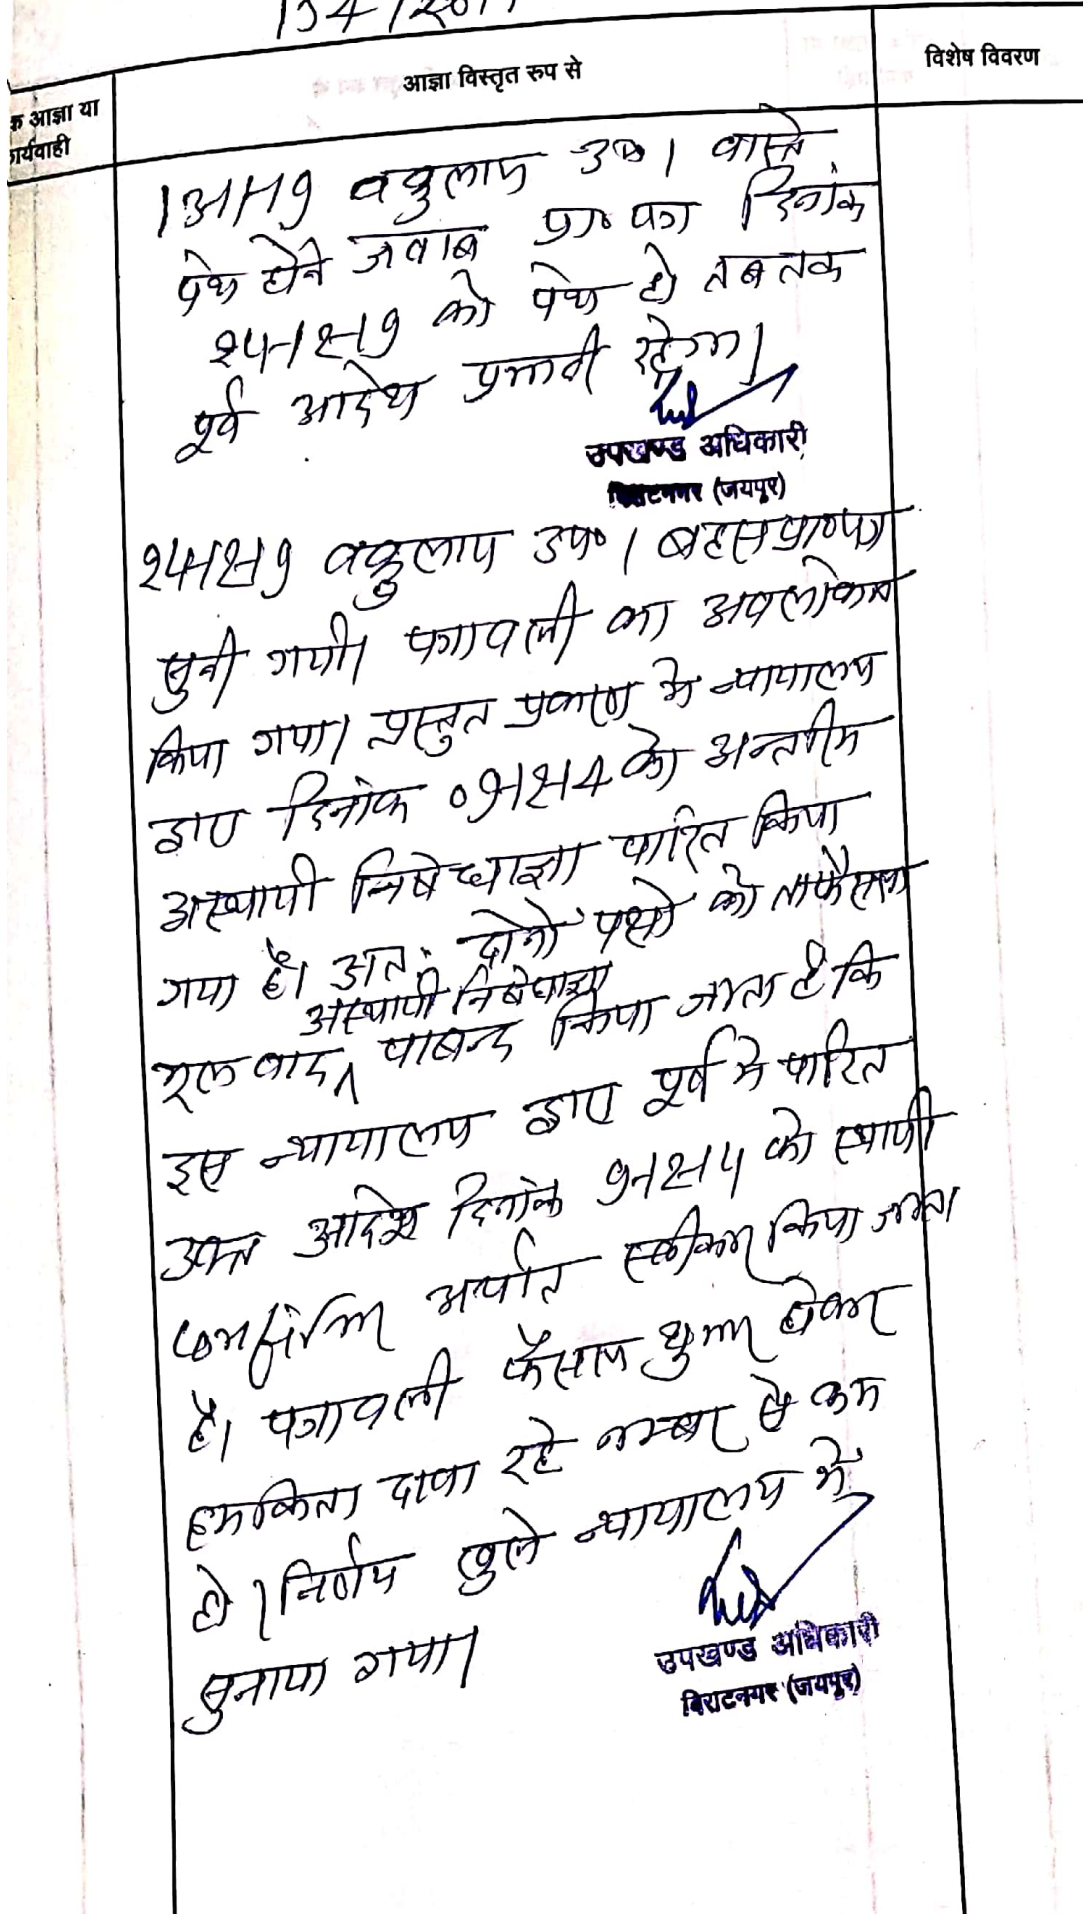 134/201
आज्ञा विस्तृत रुप से
विशेष विवरण
क आज्ञा या
र्यवाही
वकुलाय उप० । वास्ते
पेश होने जवाब प्रा० पत्र दिनांक
24-12-19 को पेश हो तब तक
पूर्व आदेश प्रभावी रहेगा।
उपखण्ड अधिकारी
विराटनगर (जयपुर)
24-12-19 वकुलाय उप० । बहस प्रा०पत्र
सुनी गयी। पत्रावली का अवलोकन
किया गया। प्रस्तुत प्रकरण मे न्यायालय
द्वारा दिनांक 09-12-14 को अन्तरीम
अस्थायी निषेधाज्ञा पारित किया
गया है। अतः दोनो पक्षो को ताफैसला
अस्थायी निषेधाज्ञा
मूल वाद पाबन्द किया जाता है कि
इस न्यायालय द्वारा पूर्व मे पारित
उक्त आदेश दिनांक 9-12-14 को स्थायी
अर्थात स्वीकार किया जाता
है। पत्रावली फैसल शुमार होकर
हमकिता दावा रहे नम्बर से कम
हो। निर्णय खुले न्यायालय में
सुनाया गया।
उपखण्ड अधिकारी
विराटनगर (जयपुर)